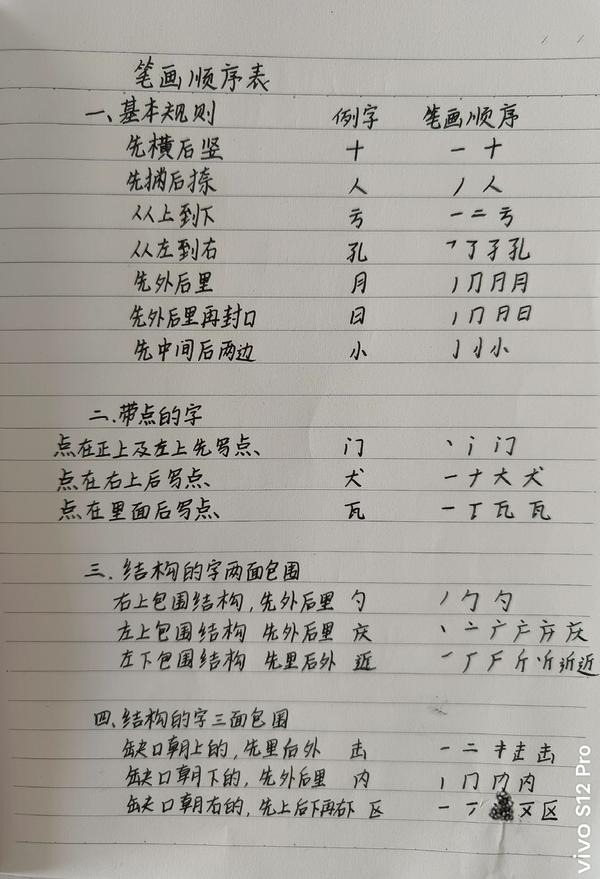 笔画顺序表
一、基本规则 例字 笔画顺序
先横后竖 十 一 十
先撇后捺 人 丿 人
从上到下 亏 一 二 亏
从左到右 孔 乛 了 孑 孔
先外后里 月 丿 冂 月 月
先外后里再封口 日 丨 冂 日 日
先中间后两边 小 亅 小 小
二.带点的字
点在正上及左上先写点、 门 丶 门
点在右上后写点、 犬 一 ナ 大 犬
点在里面后写点、 瓦 一 瓦 瓦
三.结构的字两面包围
右上包围结构,先外后里 勺 丿 勹 勺
左上包围结构 先外后里 庆 丶 亠 广 庆
左下包围结构 先里后外 近 斤 近
四、结构的字三面包围
缺口朝上的,先里后外 击 一 二 击
缺口朝下的,先外后里 内 丨 冂 内 内
缺口朝右的,先上后下再右下 区 一 区
vivo S12 Pro